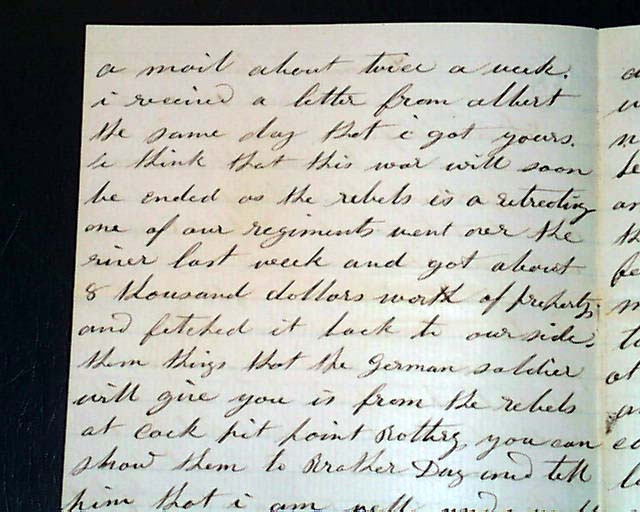 a mail about twice a week.
i received a letter from albert
the same day that i got yours.
i think that this war will soon
be ended as the rebels is a retreating
one of our regiments went over the
river last week and got about
8 thousand dollars worth of property
and fetched it back to our side.
them things that the german soldier
will give you is from the rebels
at Cock pit point Battery you can
show them to Brother Day and tell
him that i am well